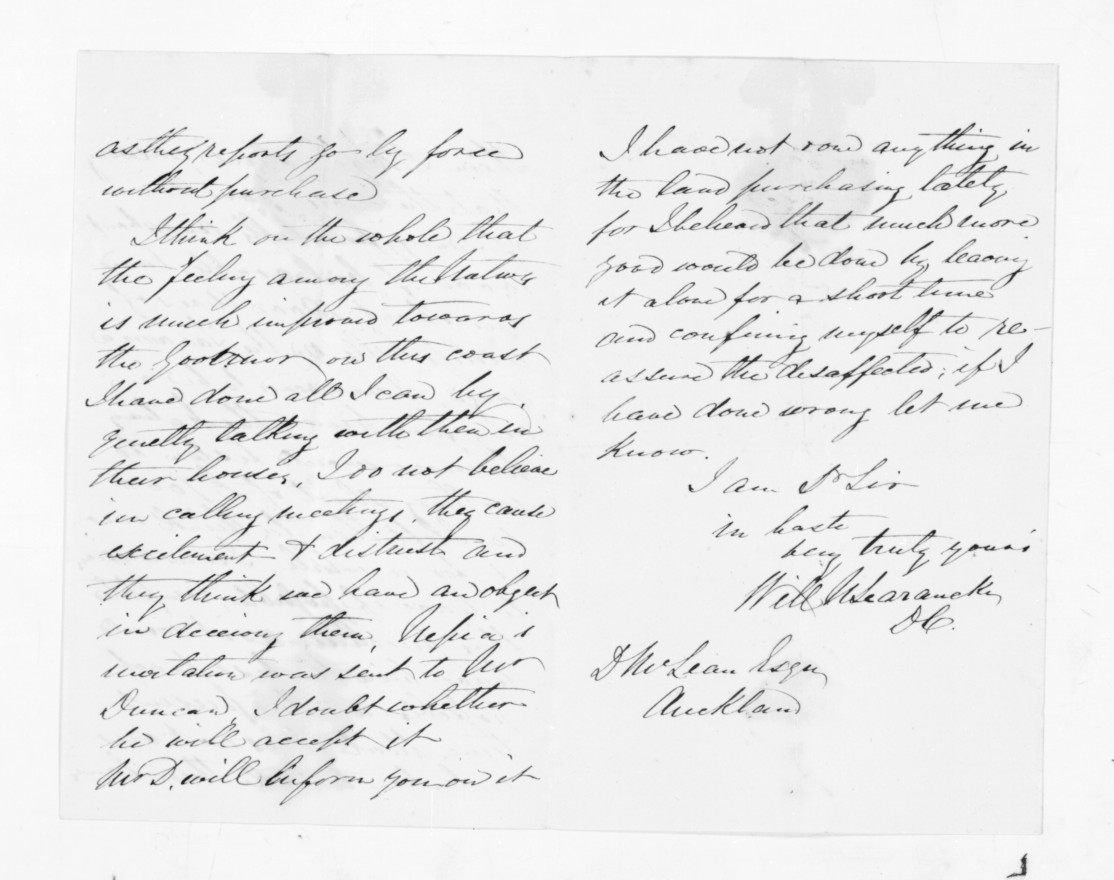 as they reports go by force
without purchase
I think on the whole that
the feeling among the Natives
is much improved towards
the Governor on this coast
I have done all I can by
quietly talking with them in
their houses, I do not believe
in calling meetings, they cause
excitement & distrust and
they think we have an object
in deceiving them, Nepia's
invitation was sent to Mr
Duncan, I doubt whether
he will accept it
Mr D. will inform you on it
I have not done anything in
the land purchasing lately,
for I believed that much more
good would be done by leaving
it alone for a short time
and confining myself to re-
assure the disaffected; if I
have done wrong let me
know.
I am Dr Sir
in haste
very truly yours
Will N Searancke
DC.
D McLean Esqr
Auckland